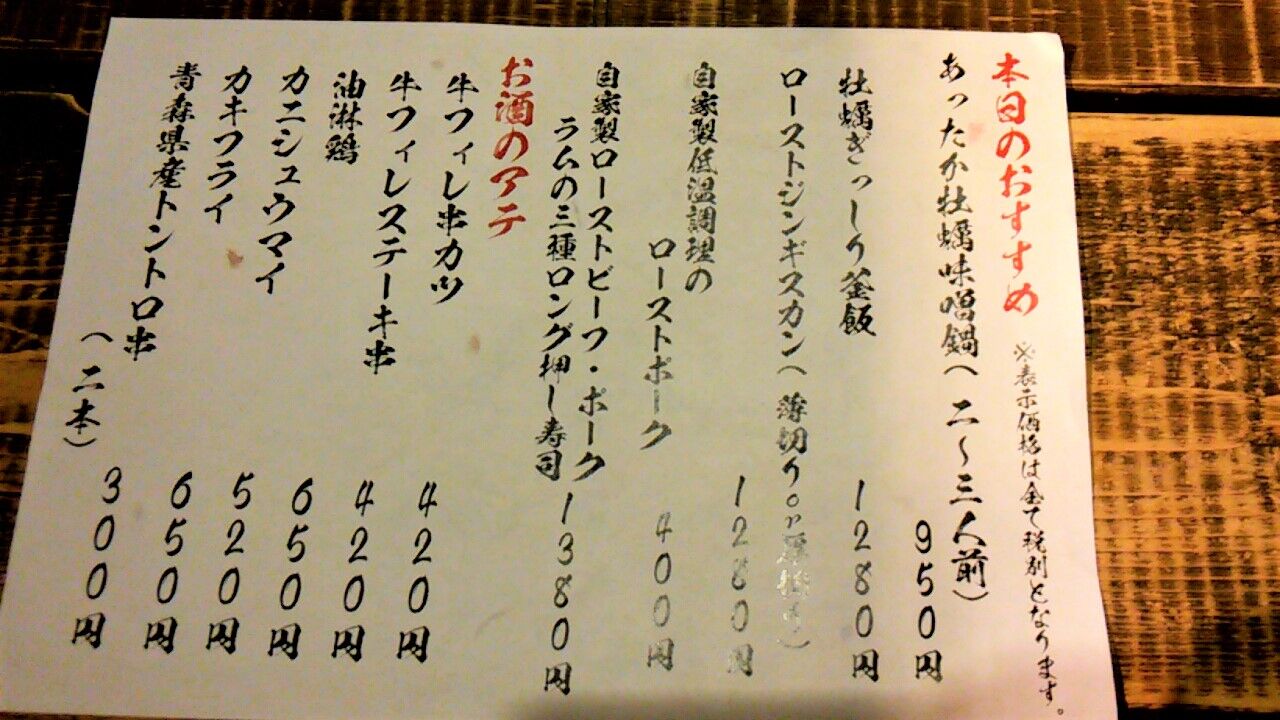 本日のおすすめ
※表示価格は全て税別となります。
あったか牡蠣味噌鍋(二〜三人前)
950円
牡蠣ぎっしり釜飯
1280円
ローストジンギスカン(薄切り
1280円
自家製低温調理の
ローストポーク
400円
自家製ローストビーフ・ポーク
ラムの三種ロング押し寿司
1380円
お酒のアテ
牛フィレ串カツ
420円
牛フィレステーキ串
420円
油淋鶏
650円
カニシュウマイ
520円
カキフライ
650円
青森県産トントロ串
(二本)
300円